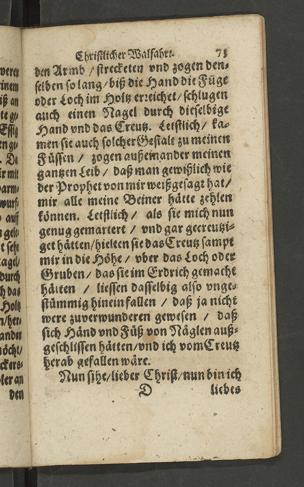 Christlicher Walfahrt. 73
den Armb / strecketen vnd zogen den-
selben so lang / biß die Hand die Füge
oder Loch im Holtz erreichet / schlugen
auch einen Nagel durch dieselbige
Hand vnd das Creutz. Letstlich / ka-
men sie auch solcher Gestalt zu meinen
Füssen / zogen außeinander meinen
gantzen Leib / daß man gewißlich wie
der Prophet von mir weißgesagt hat /
mir alle meine Beiner hätte zehlen
können. Letstlich / als sie mich nun
genug gemartert / vnd gar gecreutzi-
get hätten / hielten sie das Creutz sampt
mir in die Höhe / vber das Loch oder
Gruben / das sie im Erdrich gemacht
hätten / liessen dasselbig also vnge-
stümmig hinein fallen / daß ja nicht
were zuverwunderen gewesen / daß
sich Händ vnd Füß von Näglen auß-
geschlissen hätten / vnd ich vom Creutz
herab gefallen wäre.
Nun sihe / lieber Christ / nun bin ich
D liebes